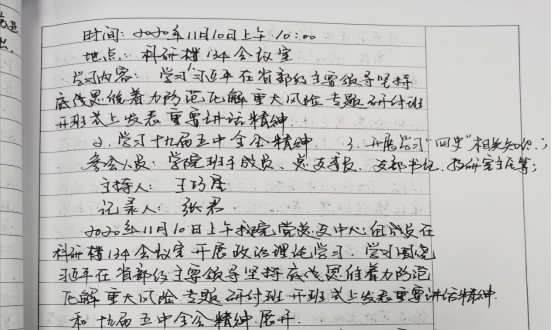 时间：2020年11月10日上午10:00
地点：科研楼134会议室
学习内容：学习习近平在省部级主要领导坚持
底线思维着力防范化解重大风险专题研讨班
开班式上发表重要讲话精神
2、学习十九届五中全会精神 3、开展学习“四史”相关知识；
参会人员：学院班子成员、总支委员、支部书记、教研室主任等；
主持人：王
记录人：张君
2020年11月10日上午我院党总支中心组成员在
科研楼134会议室开展政治理论学习。学习围绕
习近平在省部级主要领导坚持底线思维着力防范
化解重大风险专题研讨班开班式上发表重要讲话精神
和十九届五中全会精神展开.